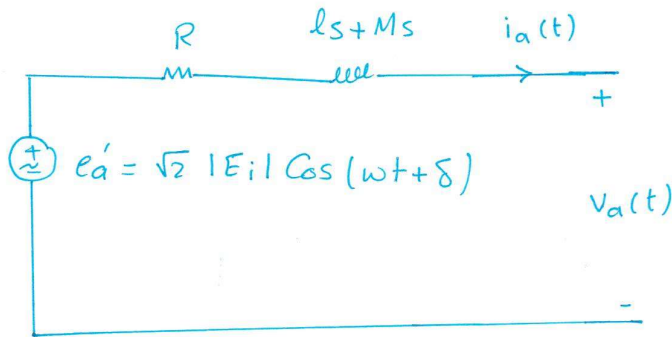 R
ls+Ms
ia(t)
+
+
ea' = √2 |Ei| Cos (wt+δ)
va(t)
-